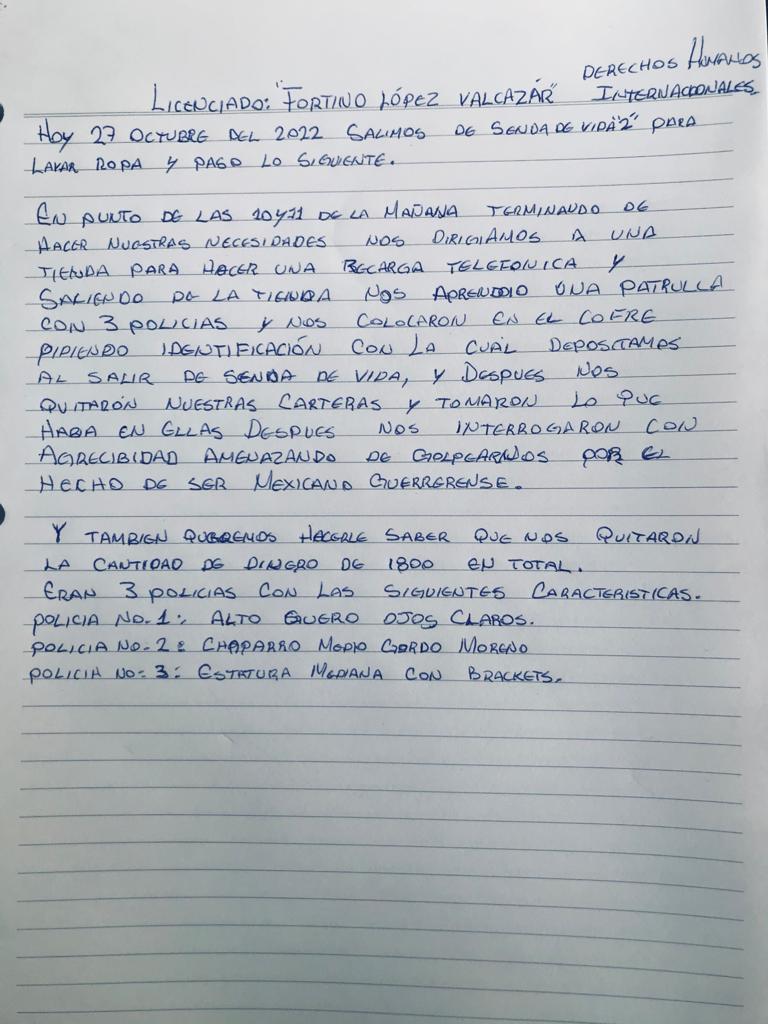 DERECHOS HUMANOS
LICENCIADO: "FORTINO LÓPEZ VALCAZÁR" INTERNACIONALES
HOY 27 OCTUBRE DEL 2022 SALIMOS DE SENDA DE VIDA "2" PARA
LAVAR ROPA Y PASO LO SIGUIENTE.
EN PUNTO DE LAS 10 Y 11 DE LA MAÑANA TERMINANDO DE
HACER NUESTRAS NECESIDADES NOS DIRIGIAMOS A UNA
TIENDA PARA HACER UNA RECARGA TELEFONICA Y
SALIENDO DE LA TIENDA NOS APRENDIO UNA PATRULLA
CON 3 POLICIAS Y NOS COLOCARON EN EL COFRE
PIDIENDO IDENTIFICACIÓN CON LA CUAL DEPOSITAMOS
AL SALIR DE SENDA DE VIDA, Y DESPUES NOS
QUITARÓN NUESTRAS CARTERAS Y TOMARON LO QUE
HABA EN ELLAS DESPUES NOS INTERROGARON CON
AGRECIBIDAD AMENAZANDO DE GOLPEARNOS POR EL
HECHO DE SER MEXICANO GUERRERENSE.
Y TAMBIEN QUEREMOS HACERLE SABER QUE NOS QUITARON
LA CANTIDAD DE DINERO DE 1800 EN TOTAL.
ERAN 3 POLICIAS CON LAS SIGUIENTES CARACTERISTICAS.
POLICIA NO. 1: ALTO GUERO OJOS CLAROS.
POLICIA NO. 2: CHAPARRO MEDIO GORDO MORENO
POLICIA NO. 3: ESTATURA MEDIANA CON BRACKETS.